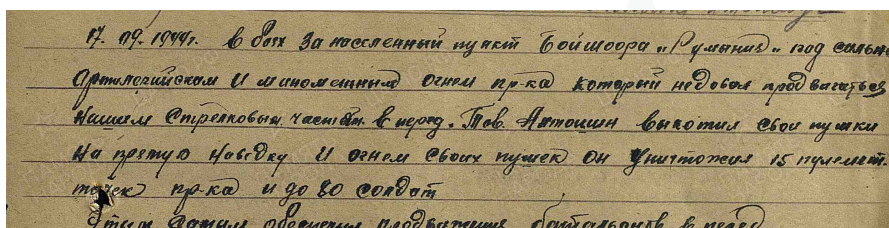 17.09.1944г. в боях за населенный пункт Бойшоора „Румыния" под сильн
Артилерийскам и минометным огнем пр-ка который недовал продвигаться
нашим стрелковым частям в перед. Тов. Антошин выкотил свои пушки
на прямую наводку и огнем своих пушек он уничтожил 15 пулемет.
точек пр-ка и до 80 солдат
Этим самым обеспечил продвижения батальонов в перед